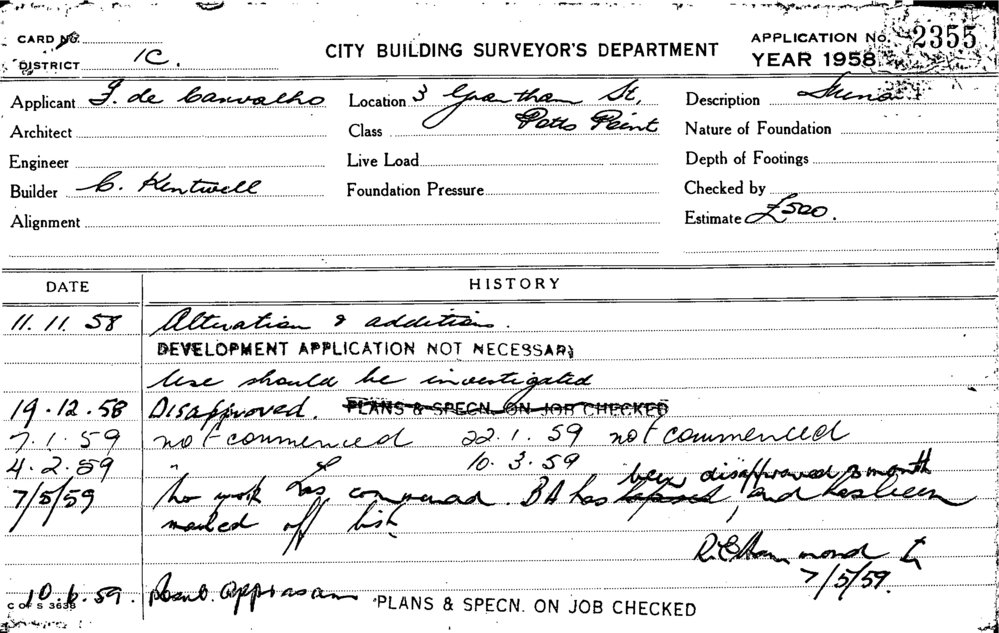 CARD No.
DISTRICT 1C.
CITY BUILDING SURVEYOR'S DEPARTMENT
APPLICATION No. 2355
YEAR 1958
Applicant F. de Carvalho
Location 3 Grantham St,
Description
Architect
Class Potts Point
Nature of Foundation
Engineer
Live Load
Depth of Footings
Builder C. Kentwell
Foundation Pressure
Checked by
Alignment
Estimate £500.
DATE HISTORY
11.11.58 Alteration & additions.
DEVELOPMENT APPLICATION NOT NECESSARY
Use should be investigated
19.12.58 Disapproved. PLANS & SPECN. ON JOB CHECKED
7.1.59 not commenced 22.1.59 not commenced
4.2.59 " 10.3.59
been disapproved 3 month
7/5/59 No work has commenced. BA has lapsed, and has been
marked off list
R.E. Hammond
7/5/59.
10.6.59. PLANS & SPECN. ON JOB CHECKED
C OF S 3638